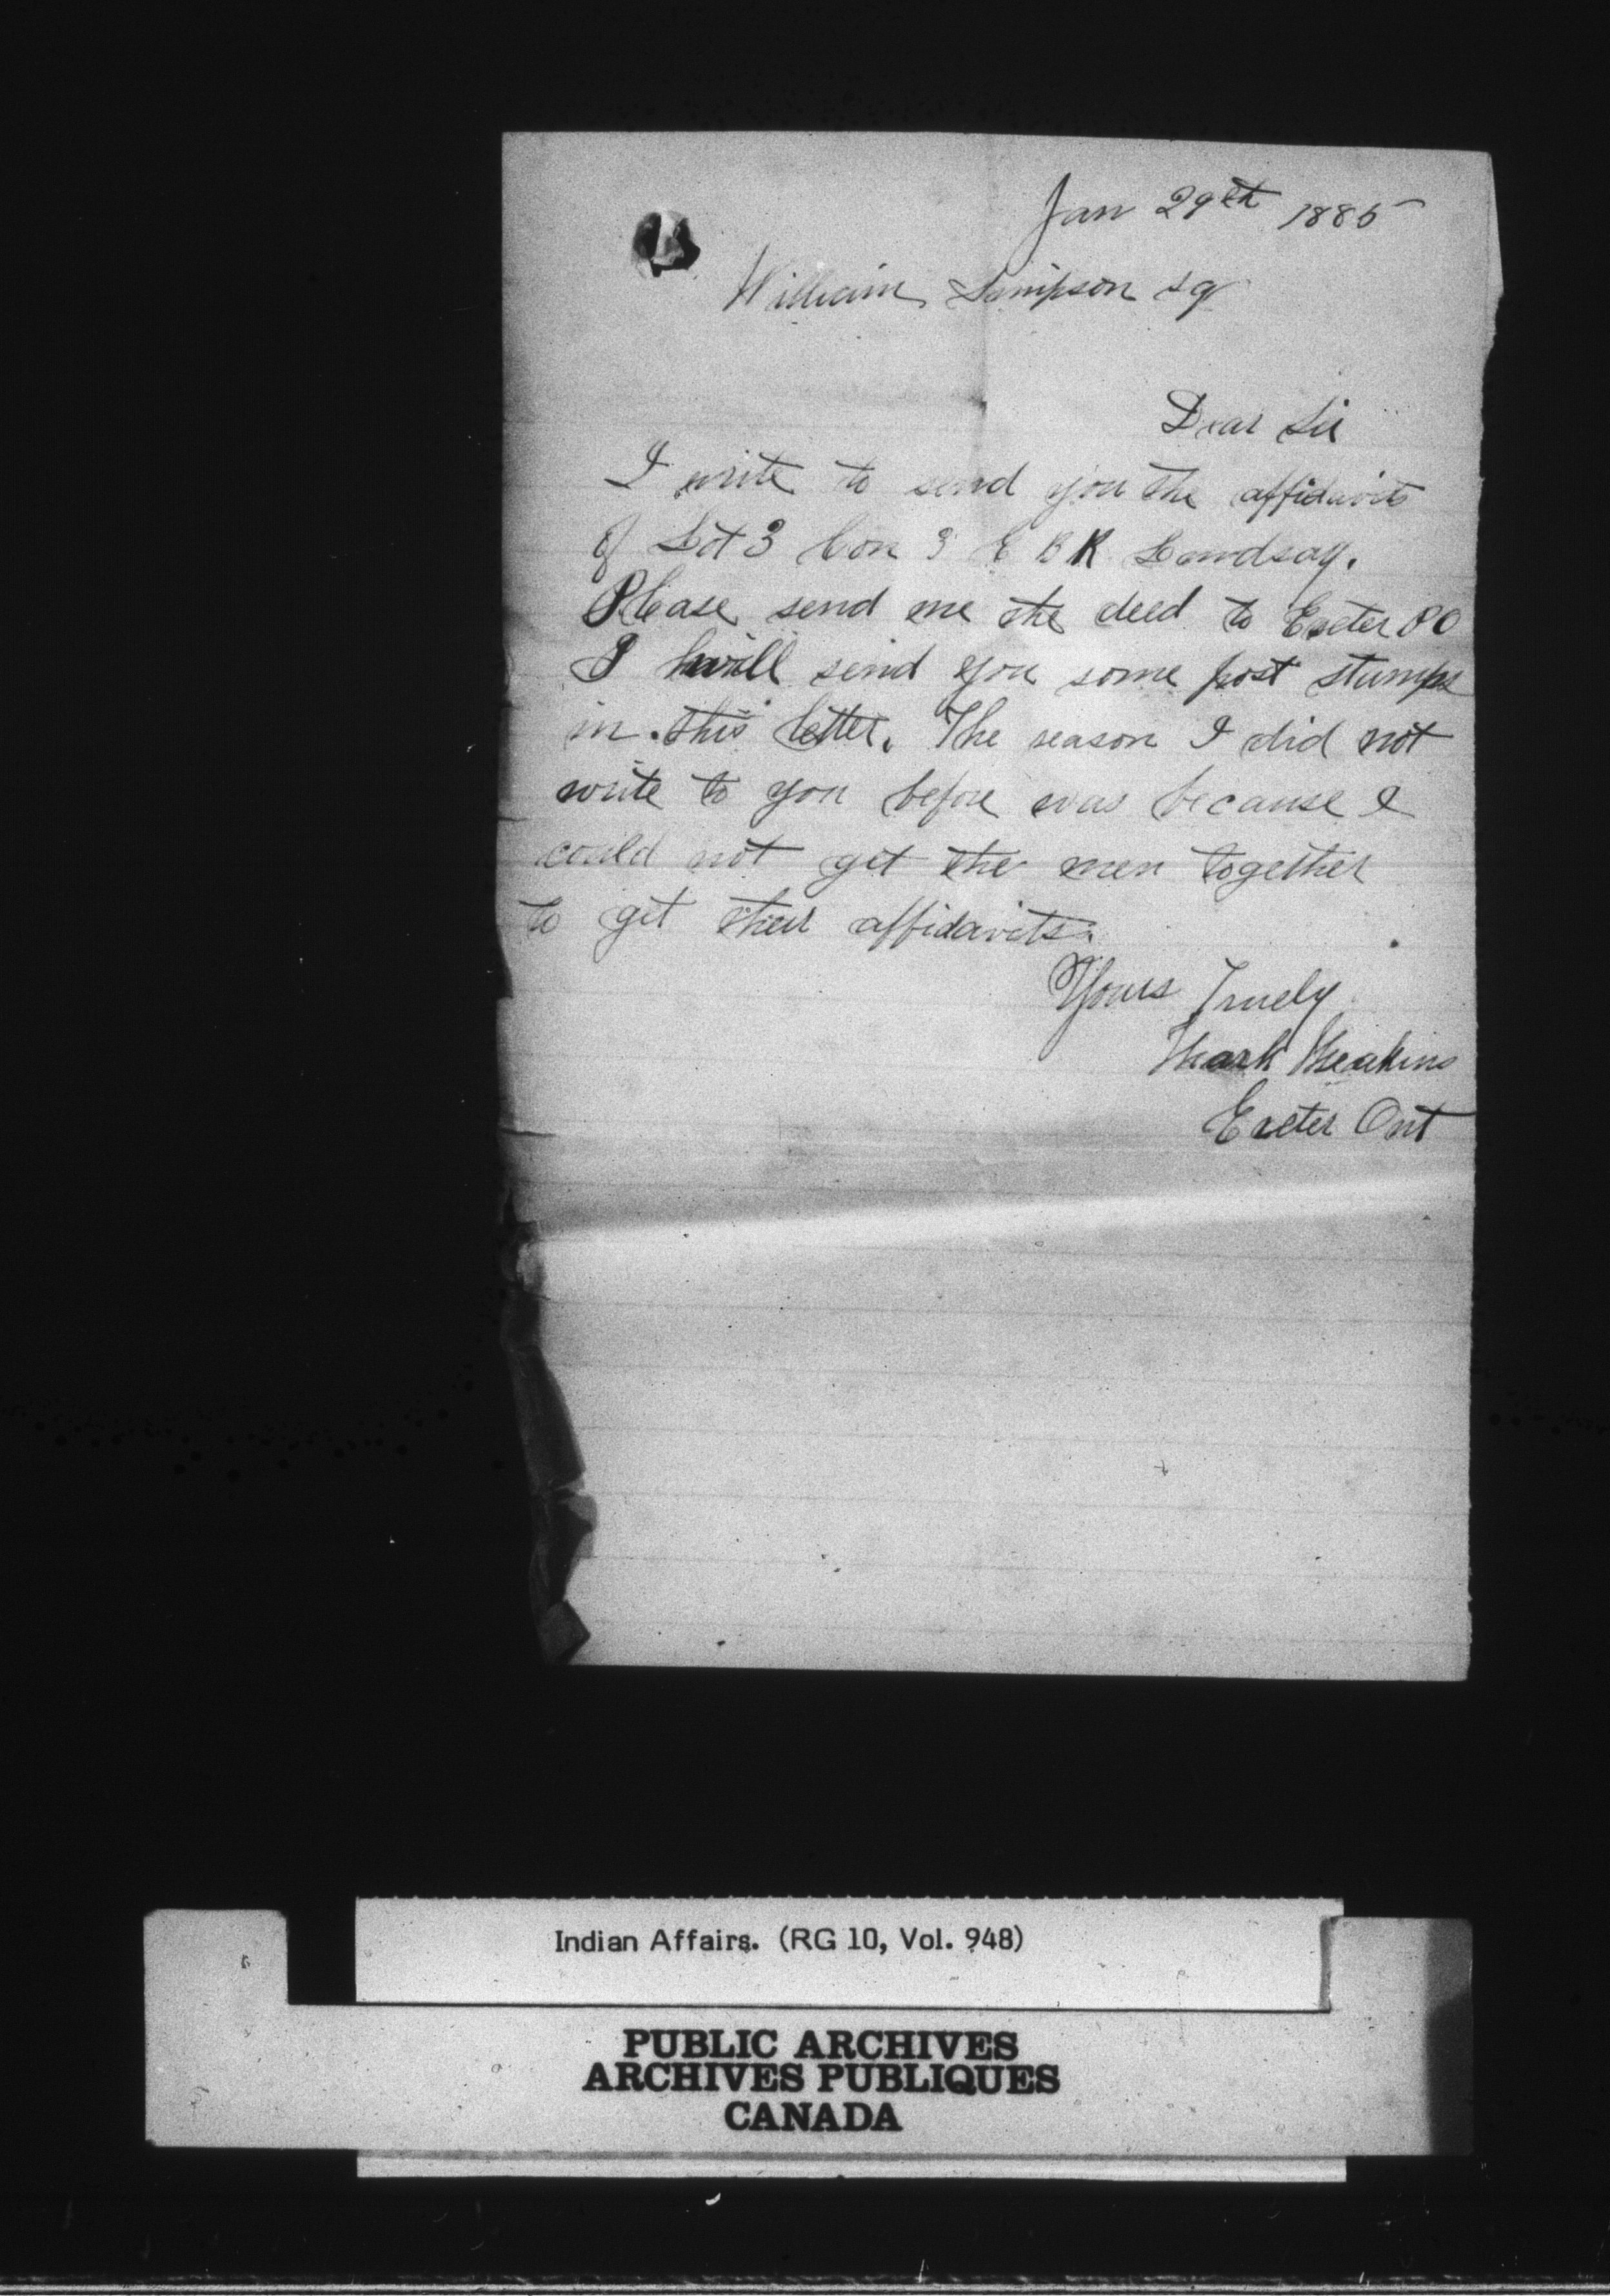 Jan 29th 1885
William Simpson sq
Dear Sir
I write to send you the affidavits
of Lot 3 Con 3 E B R Lendsay.
Please send me the deed to Exeter PO
I will send you some post stumps
in this letter. The reason I did not
write to you before was because I
could not get the men together
to get their affidavits.
Yours Truely
Mark Meakins
Exeter Ont
Indian Affairs. (RG 10, Vol. 948)
PUBLIC ARCHIVES
ARCHIVES PUBLIQUES
CANADA